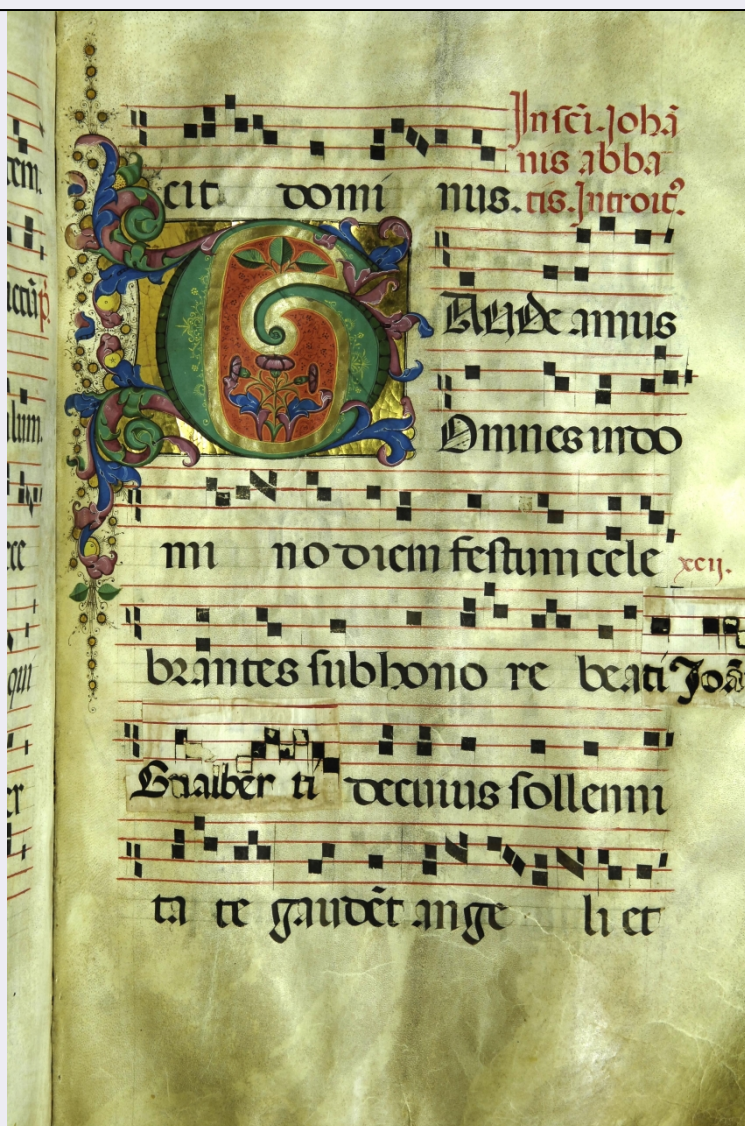 cit domi nus. In sc̄i. Johā
nis abba
tis. Introit⁹.
GAUDe amus
Omnes in do
mi no diem festum cele
xcij.
brantes sub hono re beati Joā
Gualber ti de cuius sollenni
ta te gaudēt ange li et
tem.
lum.
qui